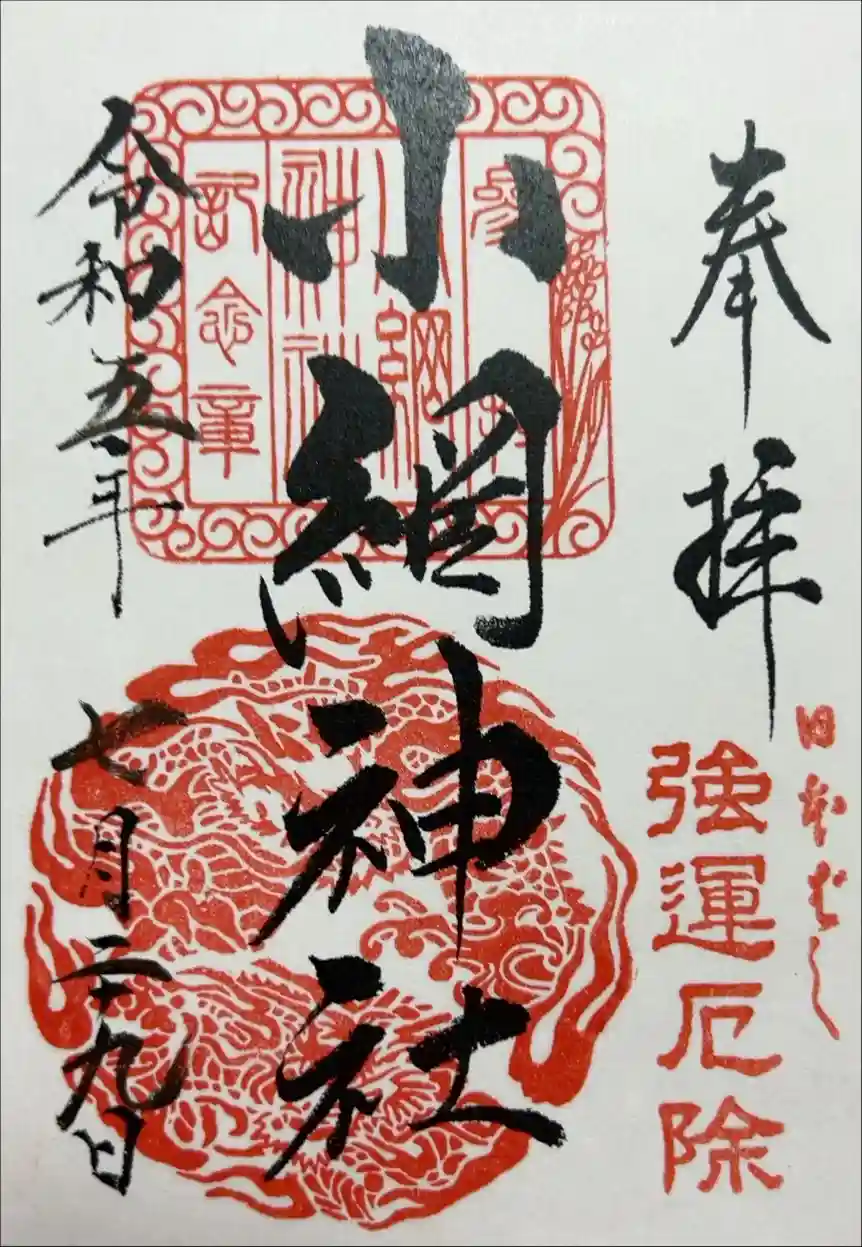 奉拝
日本ばし
強運厄除
小網神社
参拝
小網
神社
記念章
令和五年
七月二十九日